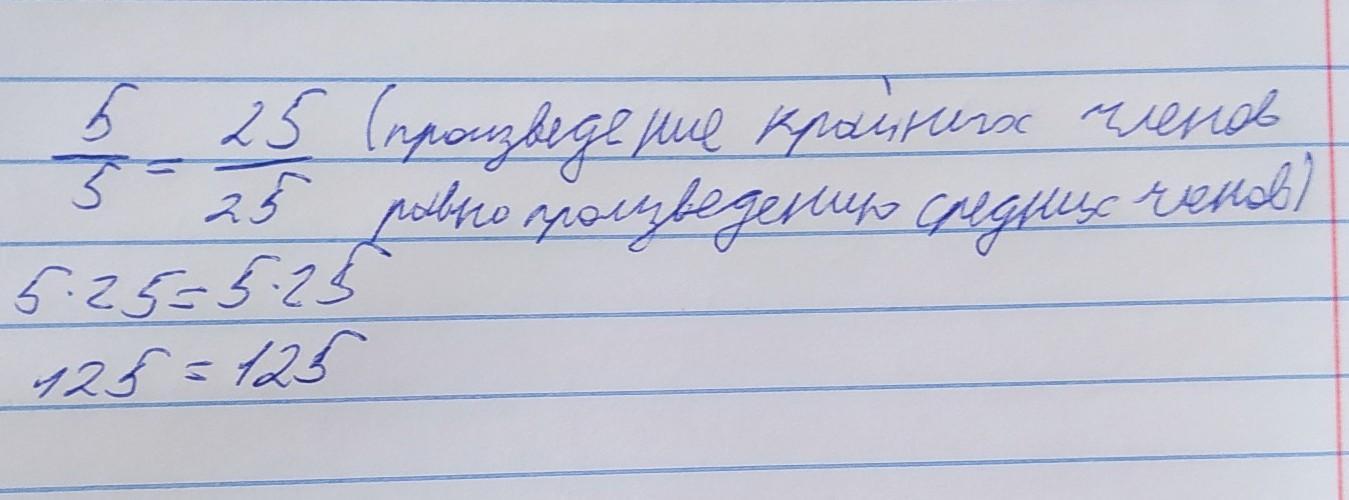 5/5 = 25/25 (произведение крайних членов
равно произведению средних членов)
5·25=5·25
125=125